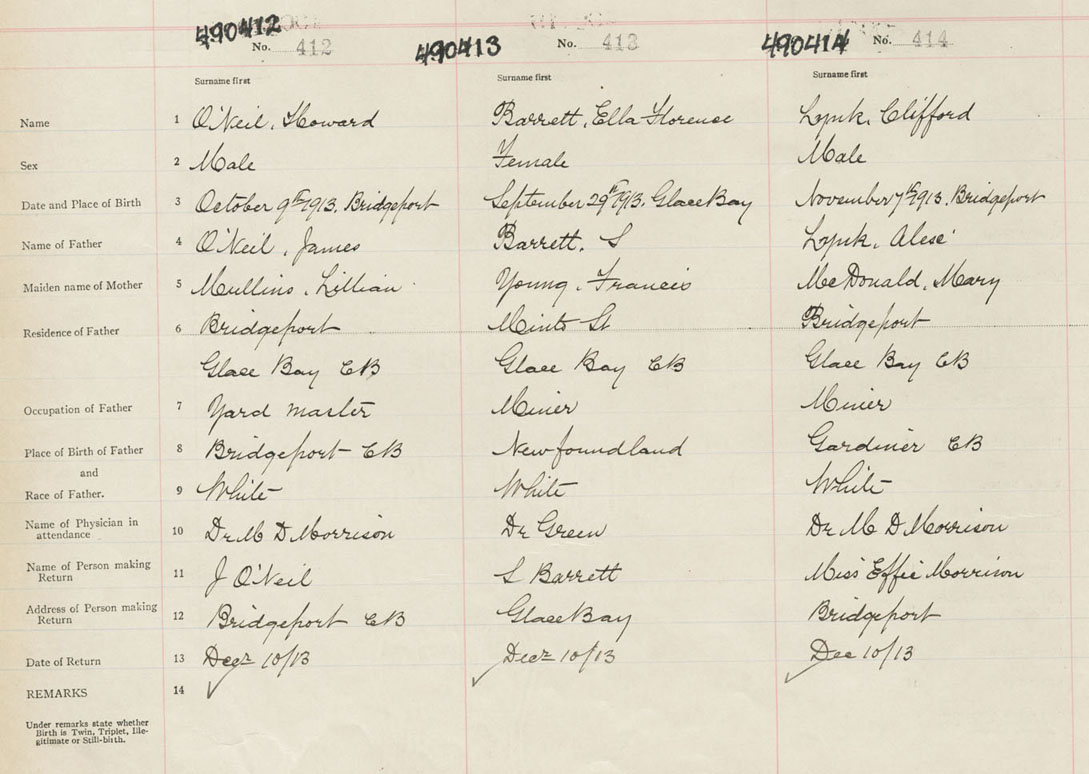 490412 No. 412 490413 No. 413 490414 No. 414
Surname first Surname first Surname first
Name 1 O'Neil, Howard Barrett, Ella Florence Clifford
Sex 2 Male Female Male
Date and Place of Birth 3 October 9th 1913, Bridgeport September 29th 1913, Glace Bay November 7th 1913, Bridgeport
Name of Father 4 O'Neil, James Barrett, S
Maiden name of Mother 5 Mullins, Lillian Young, Francis McDonald, Mary
Residence of Father 6 Bridgeport Minto St Bridgeport
Glace Bay CB Glace Bay CB Glace Bay CB
Occupation of Father 7 Yard master Miner Miner
Place of Birth of Father 8 Bridgeport CB Newfoundland Gardiner CB
and
Race of Father. 9 White White White
Name of Physician in attendance 10 Dr M D Morrison Dr Green Dr M D Morrison
Name of Person making Return 11 J O'Neil S Barrett Miss Effie Morrison
Address of Person making Return 12 Bridgeport CB Glace Bay Bridgeport
Date of Return 13 Decr 10/13 Decr 10/13 Dec 10/13
REMARKS 14
Under remarks state whether
Birth is Twin, Triplet, Ille-
gitimate or Still-birth.